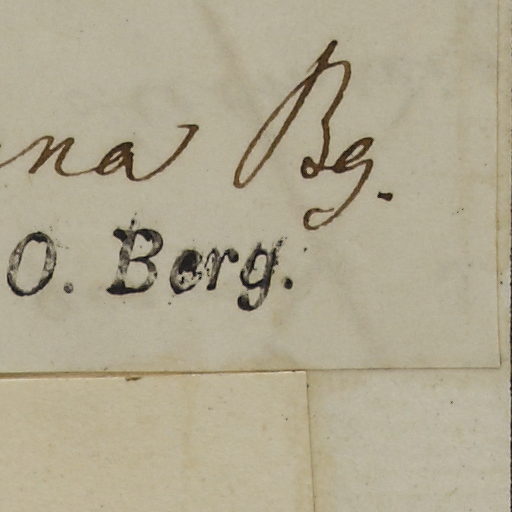 na Bg.
O. Berg.